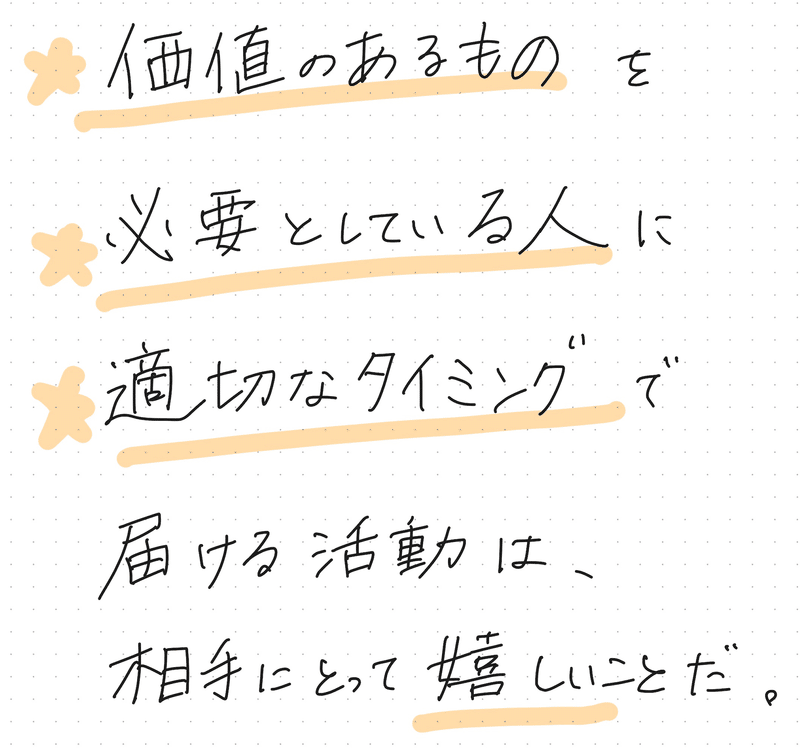 価値のあるものを
必要としている人に
適切なタイミングで
届ける活動は、
相手にとって嬉しいことだ。